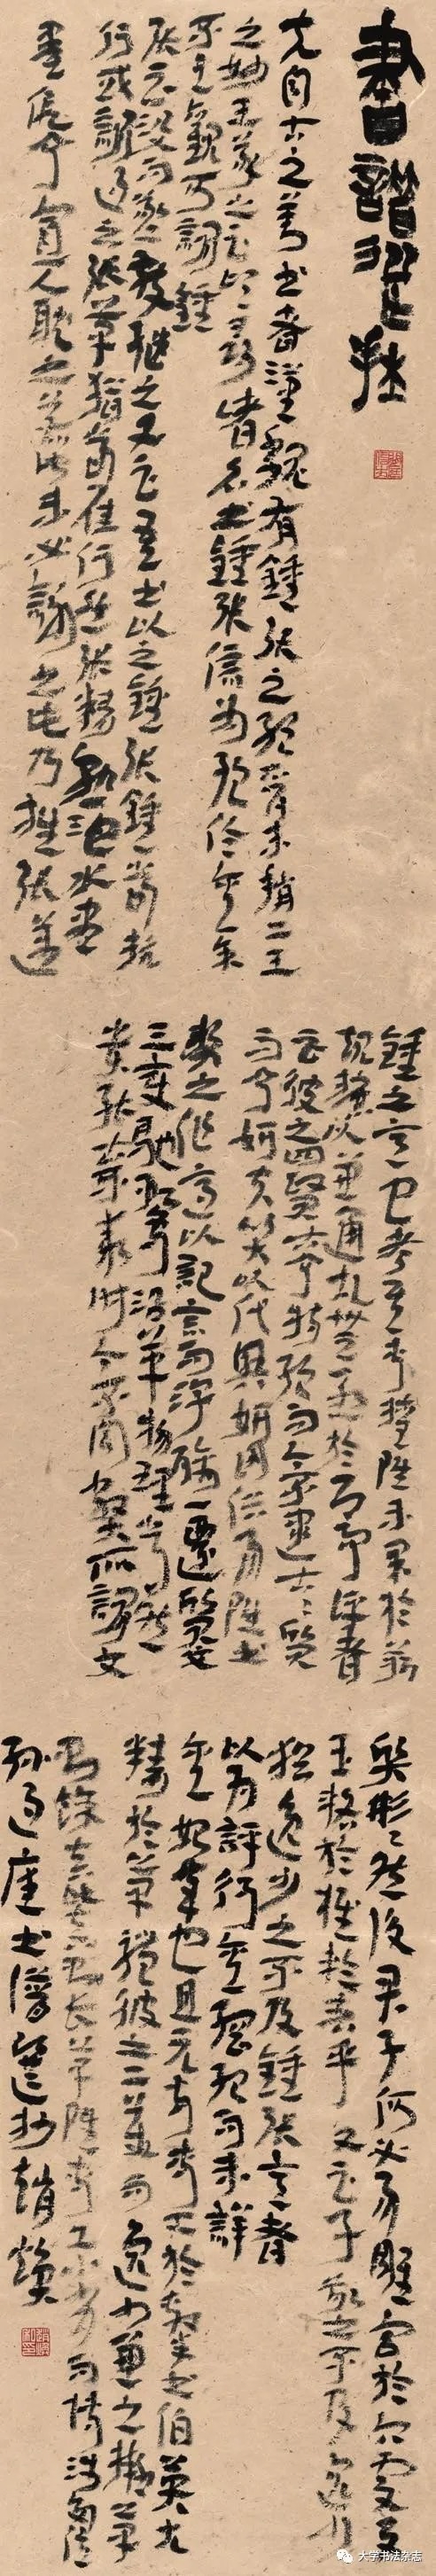 夫自古之善書者漢魏有鍾張之絕晉末稱二王
之妙王羲之云頃尋諸名書鍾張信為絕倫其餘
不足觀可謂鍾
張云沒而羲獻繼之又云吾書比之鍾張鍾當抗
行或謂過之張草猶當雁行然張精熟池水盡
墨假令寡人耽之若此未必謝之此乃推張邁
鍾之意也考其專擅雖未果於前
規摭以兼通故無慚於即事評者
云彼之四賢古今特絕而今不逮古古質
而今妍夫質以代興妍因俗易雖書
契之作適以記言而淳醨一遷質文
三變馳騖沿革物理常然
貴能古不乖時今不同弊所謂文
質彬彬然後君子何必易雕宮於穴處反
玉輅於椎輪者乎又云子敬之不及逸少
猶逸少之不及鍾張意者
以為評得其綱紀而未詳
其始卒也且元常專工於隸書伯英尤
精於草體彼之二美而逸少兼之擬草
則餘真比真則長草雖專工小劣而博涉多優
孫過庭書譜選抄趙
大学书法杂志